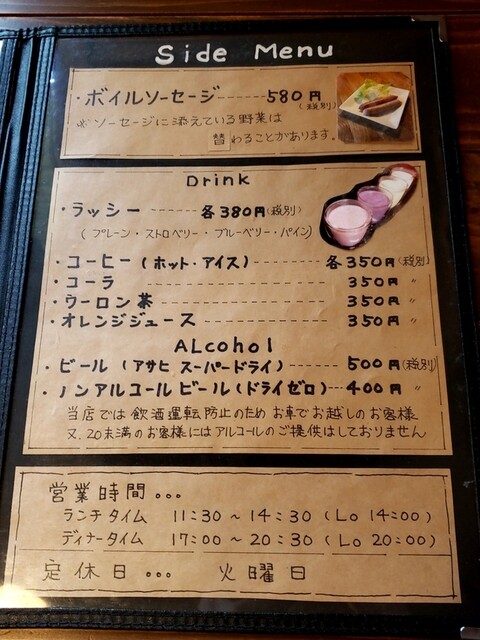 Side Menu
・ボイルソーセージ------580円(税別)
※ソーセージに添えている野菜は
替わることがあります。
Drink
・ラッシー ------ 各380円(税別)
(プレーン・ストロベリー・ブルーベリー・パイン)
・コーヒー(ホット・アイス)------- 各350円(税別)
・コーラ ------------------ 350円 〃
・ウーロン茶 ------------------ 350円 〃
・オレンジジュース ------------- 350円 〃
ALcohol
・ビール (アサヒ スーパードライ)------ 500円(税別)
・ノンアルコールビール(ドライゼロ)--- 400円 〃
当店では飲酒運転防止のためお車でお越しのお客様
又、20未満のお客様にはアルコールのご提供はしておりません
営業時間...
ランチタイム 11:30 ~ 14:30 (Lo 14:00)
ディナータイム 17:00 ~ 20:30 (Lo 20:00)
定休日... 火曜日